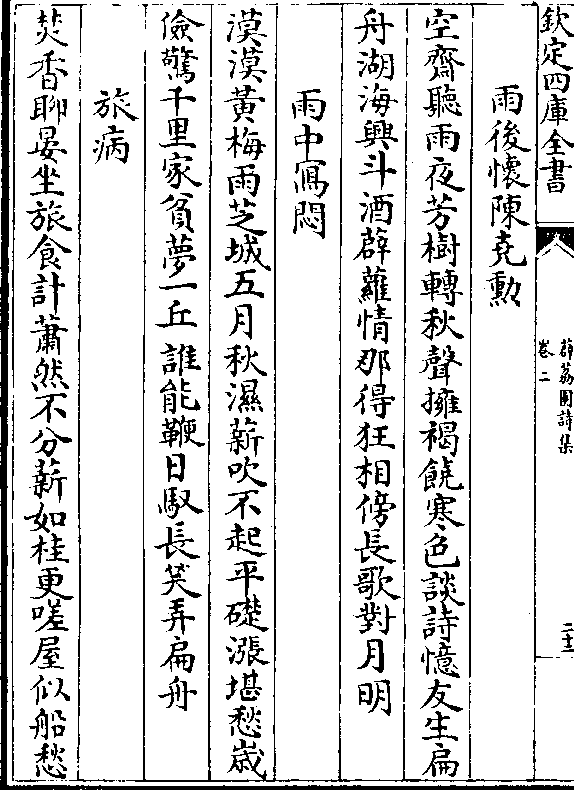 欽定四庫全書
薜荔園詩集
卷二
二十三
雨後懷陳克勲
空齋聽雨夜芳樹轉秋聲擁褐饒寒色談詩憶友生扁
舟湖海興斗酒薜蘿情那得狂相傍長歌對月明
雨中寫悶
漠漠黃梅雨芝城五月秋濕薪吹不起平礎漲堪愁歲
儉驚千里家貧夢一丘誰能鞭日馭長笑弄扁舟
旅病
焚香聊晏坐旅食計蕭然不分薪如桂更嗟屋似船愁